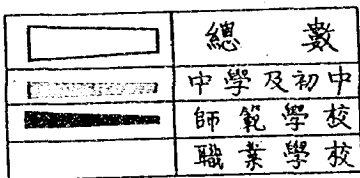 總數
中學及初中
師範學校
職業學校